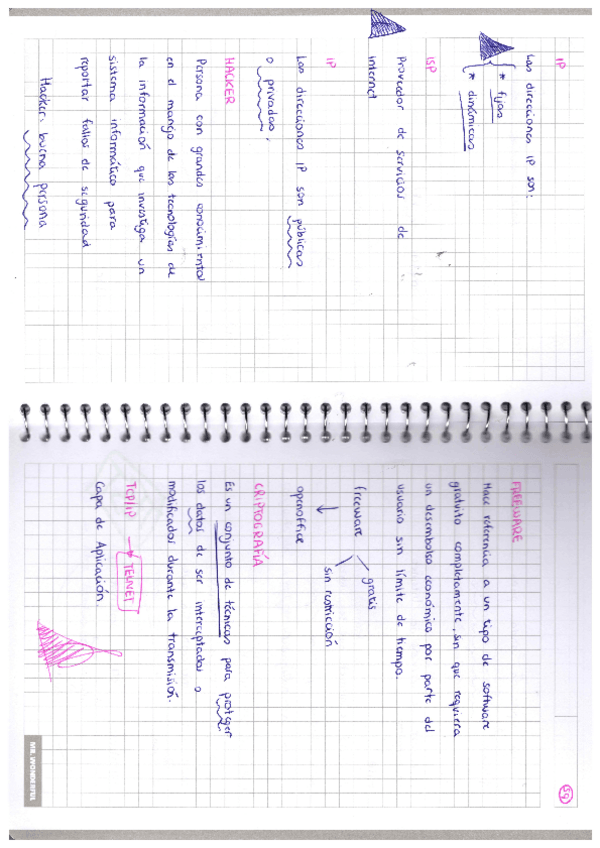 IP
Las direcciones IP son:
* fijas
* dinámicas
ISP
Proveedor de servicios de
internet
IP
Las direcciones IP son públicas
o privadas.
HACKER
Persona con grandes conocimientos
en el manejo de las tecnologías de
la información que investiga un
sistema informático para
reportar fallos de seguridad
Hacker: buena persona
59
FREEWARE
Hace referencia a un tipo de software
gratuito completamente, sin que requiera
un desembolso económico por parte del
usuario sin límite de tiempo.
freeware gratis
sin restricción
↓
openoffice
CRIPTOGRAFÍA
Es un conjunto de técnicas para proteger
los datos de ser interceptados o
modificados durante la transmisión.
TCP/IP → TELNET
Capa de Aplicación.
MR. WONDERFUL